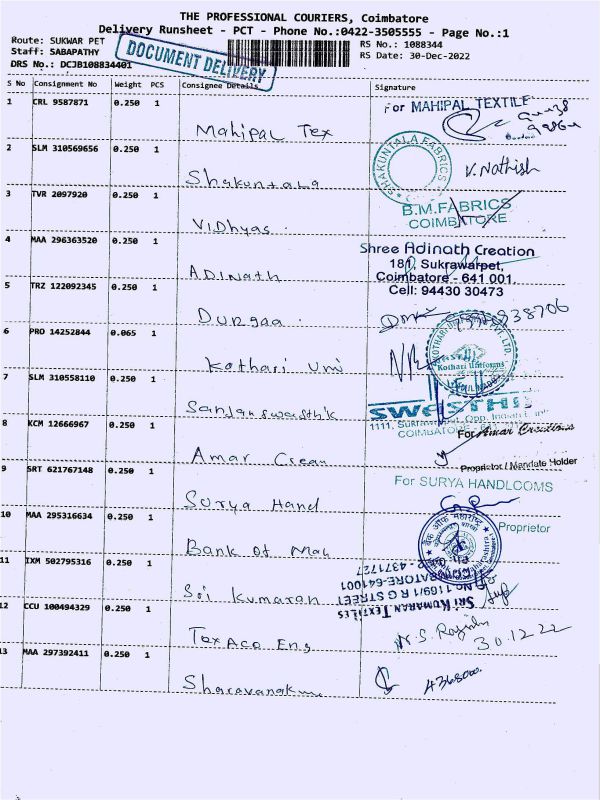 THE PROFESSIONAL COURIERS, Coimbatore
Delivery Runsheet - PCT - Phone No.:0422-3505555 - Page No.:1
Route: SUKWAR PET
RS No.: 1088344
Staff: SABAPATHY
RS Date: 30-Dec-2022
DRS No.: DCJB108834401
DOCUMENT DELIVERY
S No Consignment No Weight PCS Consignee Details Signature
1 CRL 9587871 0.250 1
For MAHIPAL TEXTILE
Mahipal Tex
2 SLM 310569656 0.250 1
SHAKUNTALA FABRICS
V. Nathish
Shakuntala
3 TVR 2097920 0.250 1
B.M.FABRICS
COIMBATORE
Vidhyas
4 MAA 296363520 0.250 1
Shree Adinath Creation
181, Sukrawarpet,
Coimbatore - 641 001.
Cell: 94430 30473
Adinath
5 TRZ 122092345 0.250 1
Durgaa
6 PRO 14252844 0.065 1
Kothari Uniforms
Kothari Uni
7 SLM 310558110 0.250 1
SWASTHIK
COIMBATORE
8 KCM 12666967 0.250 1
For Amar Creations
Proprietor / Mandate Holder
Amar Crean
9 SRT 621767148 0.250 1
For SURYA HANDLOOMS
Proprietor
Surya Hand
10 MAA 295316634 0.250 1
बैंक ऑफ महाराष्ट्र
Bank of Mah
11 IXM 502795316 0.250 1
SRI KUMARAN TEXTILES
No.1109/1 R G STREET
COIMBATORE-641001
4371727
Sri Kumaran
12 CCU 100494329 0.250 1
30.12.22
Texaco Eng
13 MAA 297392411 0.250 1